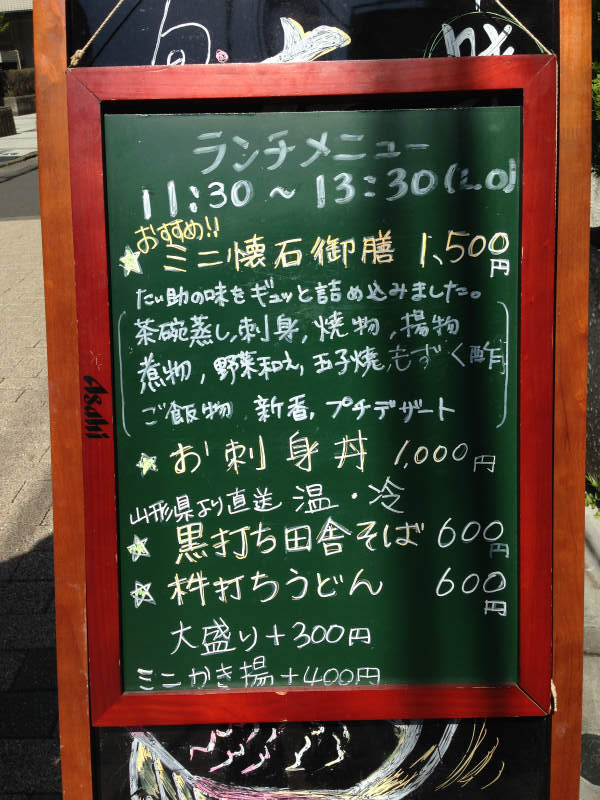 旬
ランチメニュー
11:30～13:30(L.O)
おすすめ!!
★ミニ懐石御膳 1,500円
たい助の味をギュッと詰め込みました。
茶碗蒸し,刺身,焼物,揚物
煮物,野菜和え,玉子焼,もずく酢
ご飯物 新香,プチデザート
Asahi
★お刺身丼 1,000円
山形県より直送 温・冷
★黒打ち田舎そば 600円
★杵打ちうどん 600円
大盛り+300円
ミニかき揚+400円